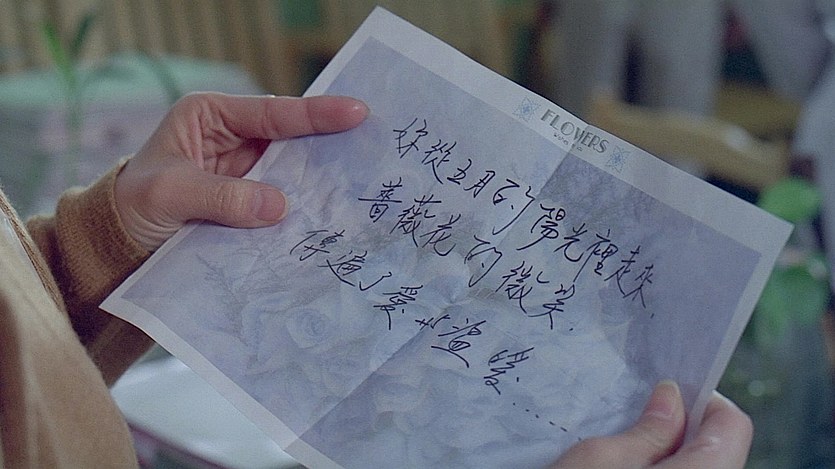 FLOWERS
妳從五月的陽光裡走來.
薔薇花的微笑.
傳遍了愛与溫暖......